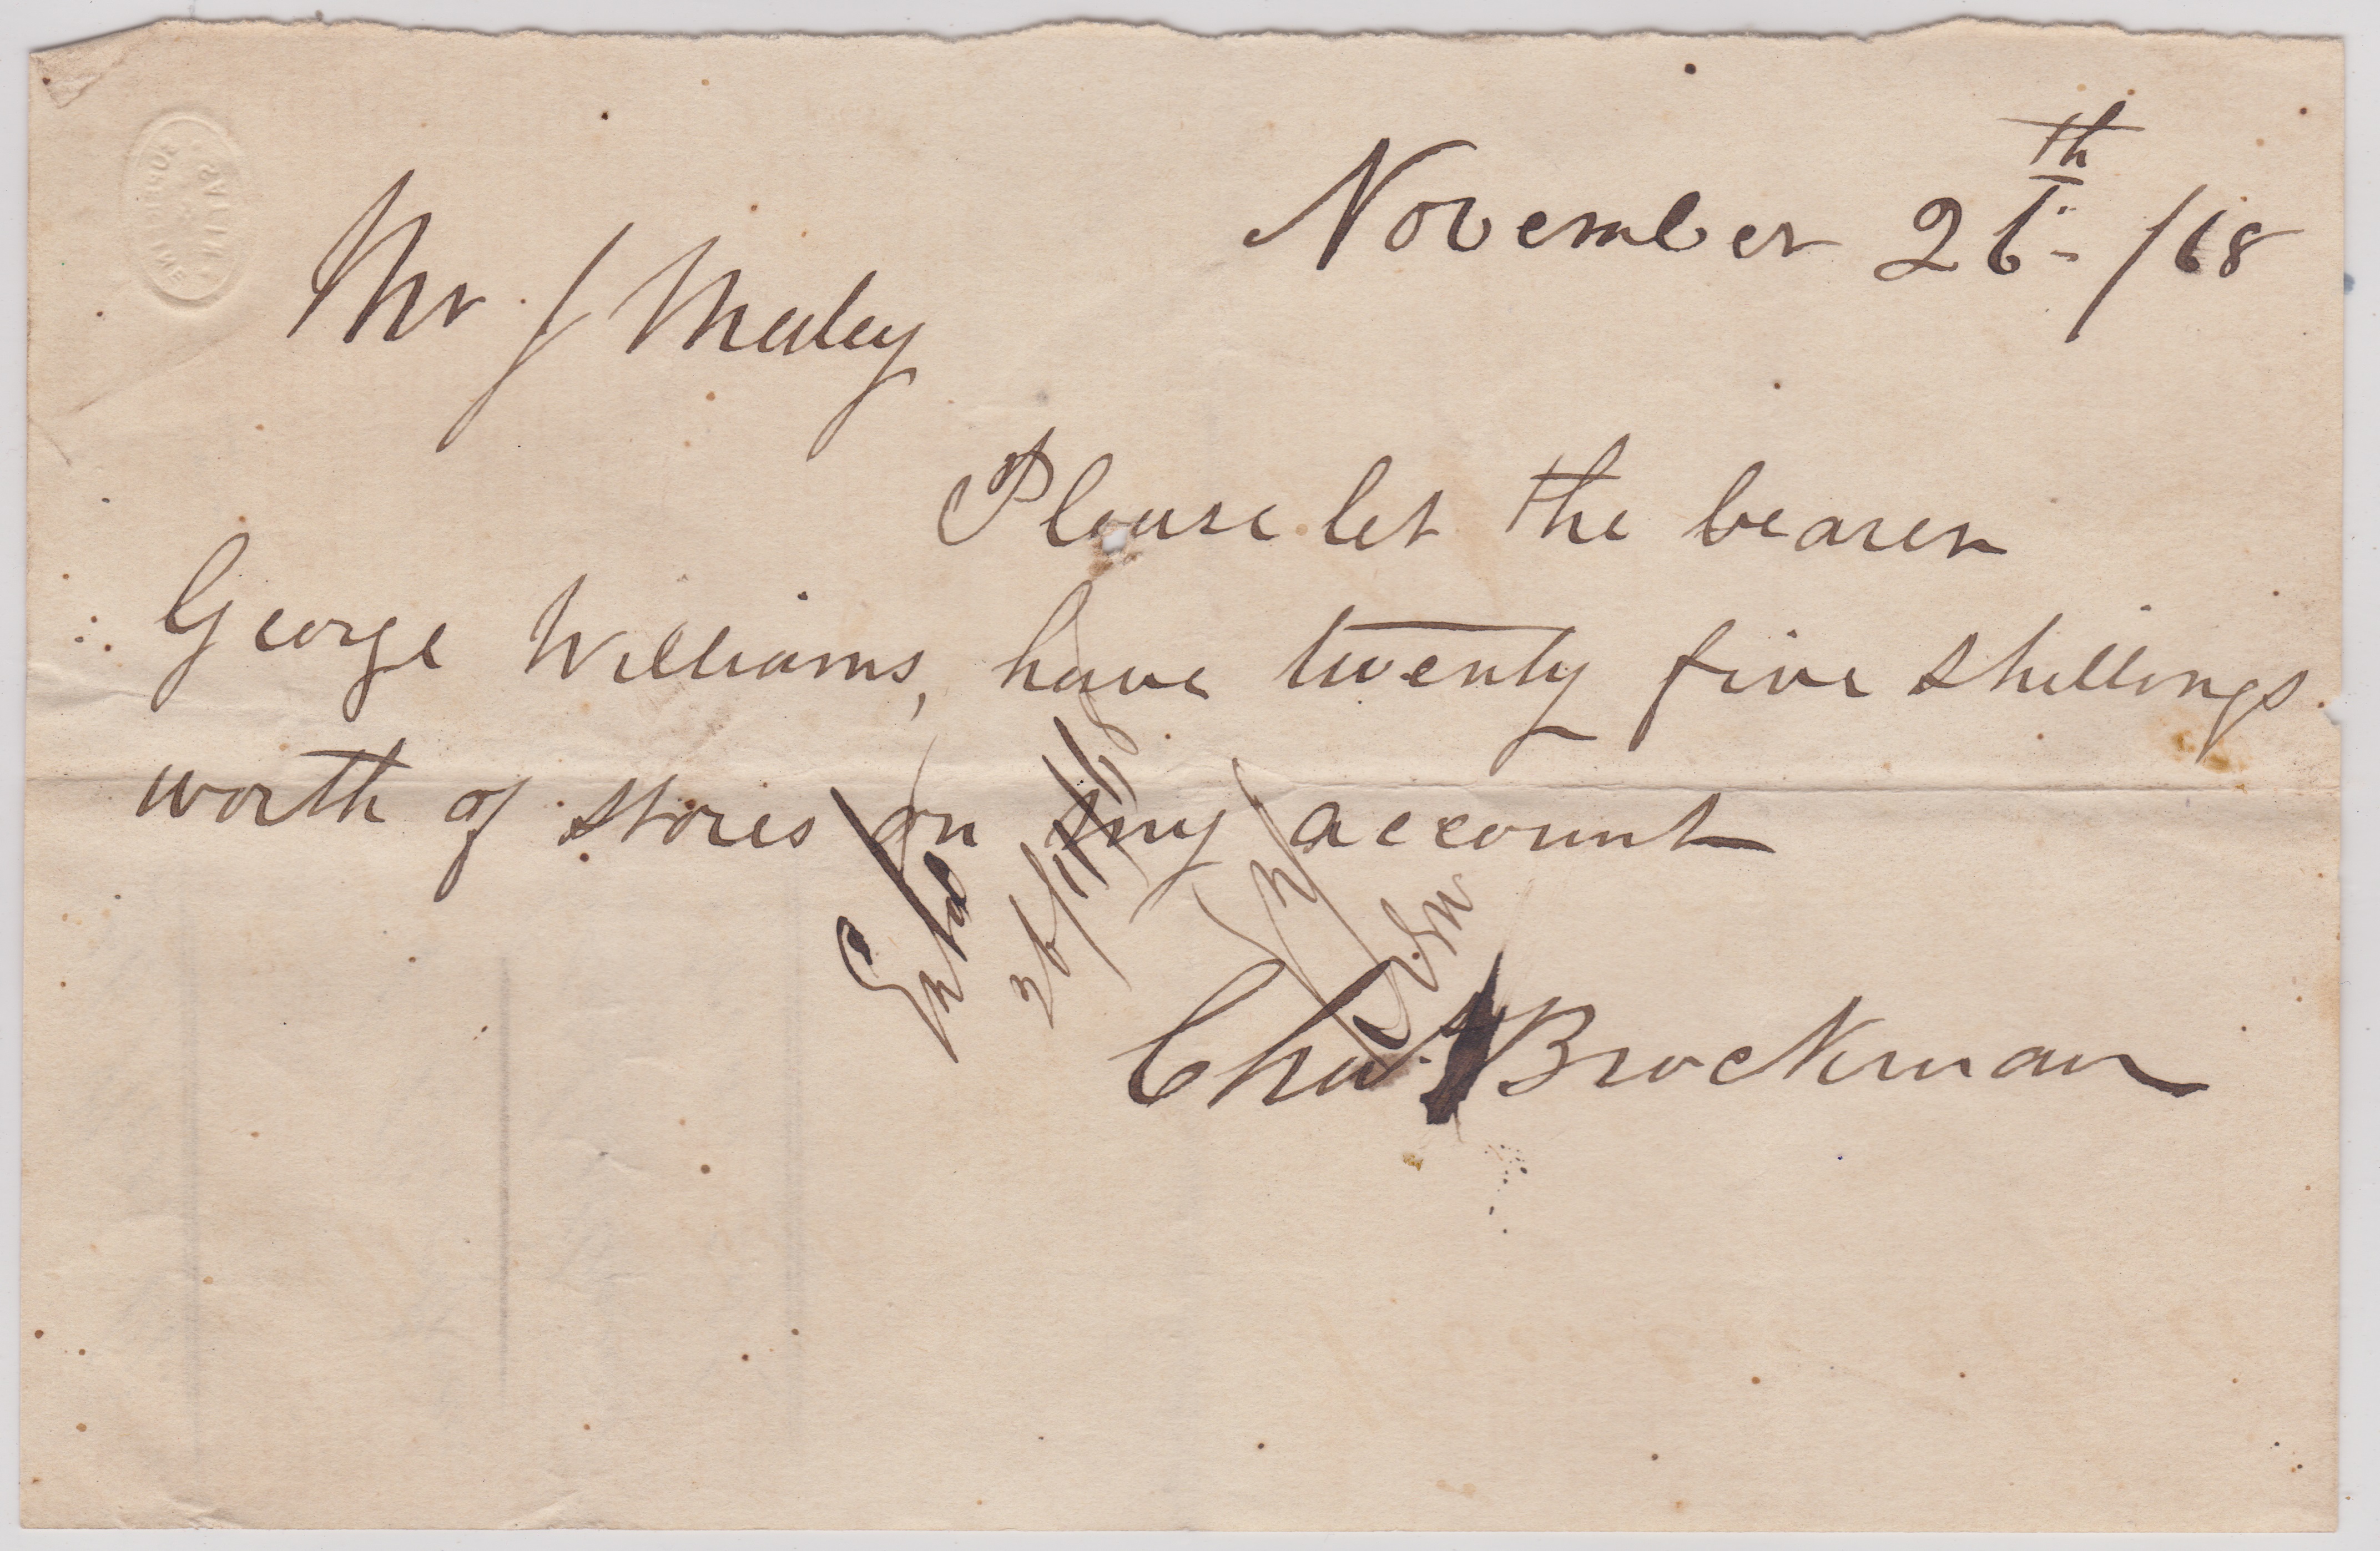 November 26th /68
Mr J Maley
Please let the bearer
George Williams, have twenty five shillings
worth of stores on my account
Entd
26/11/68
Chas Brockman